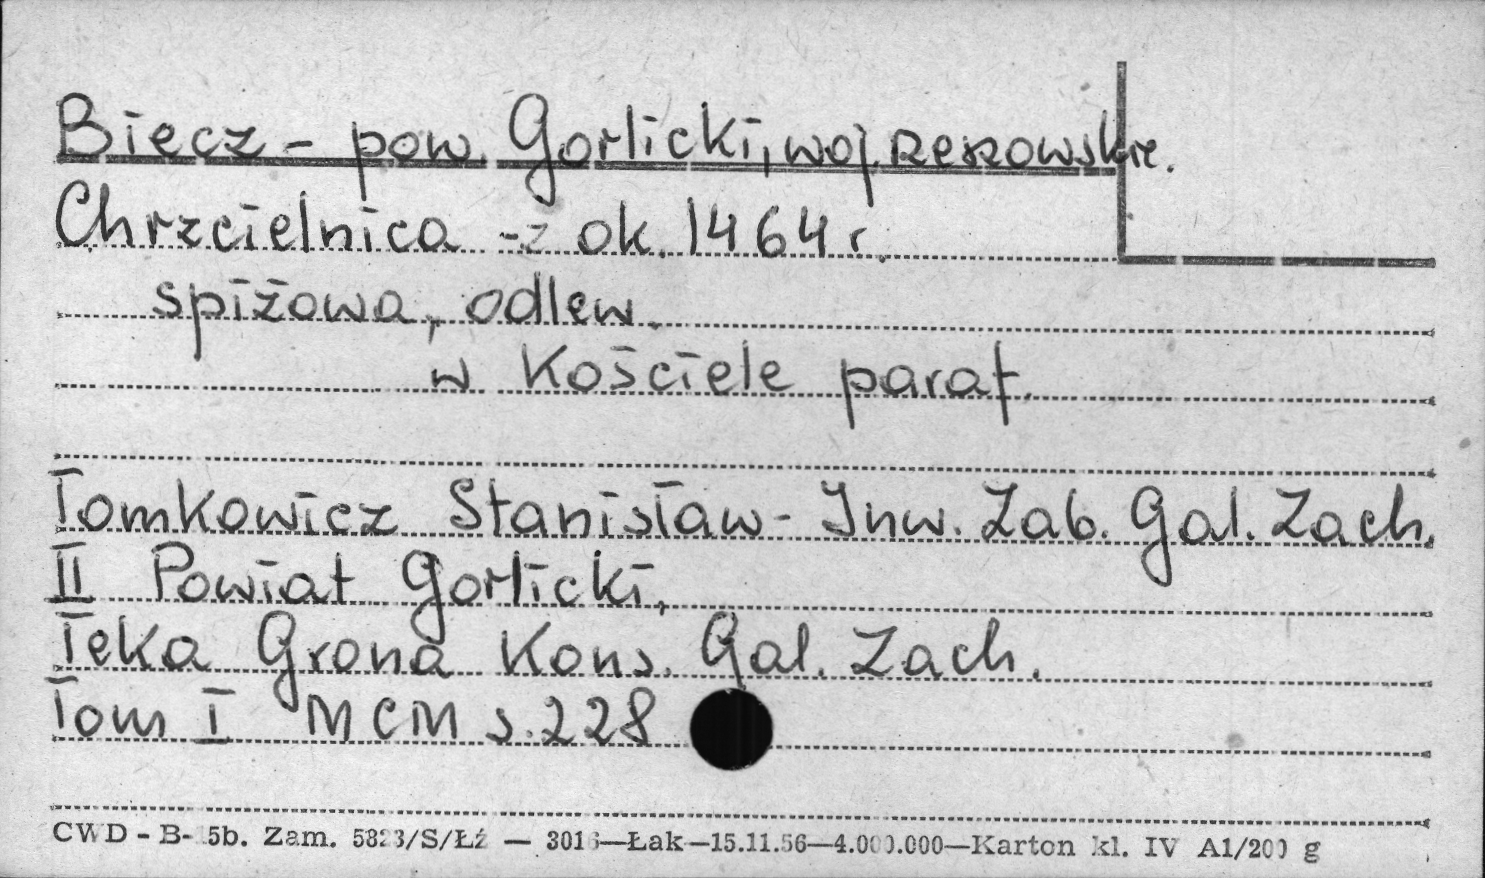 Biecz - pow. Gorlicki, woj. Rzeszowskie.
Chrzcielnica - z ok. 1464 r.
spiżowa, odlew.
w Kościele paraf.
Tomkowicz Stanisław - Inw. Zab. Gal. Zach.
II Powiat Gorlicki,
Teka Grona Kons. Gal. Zach.
Tom I MCM s. 228
CWD - B- 5b. Zam. 5823/S/Łź — 3016—Łak—15.11.56—4.000.000—Karton kl. IV A1/200 g